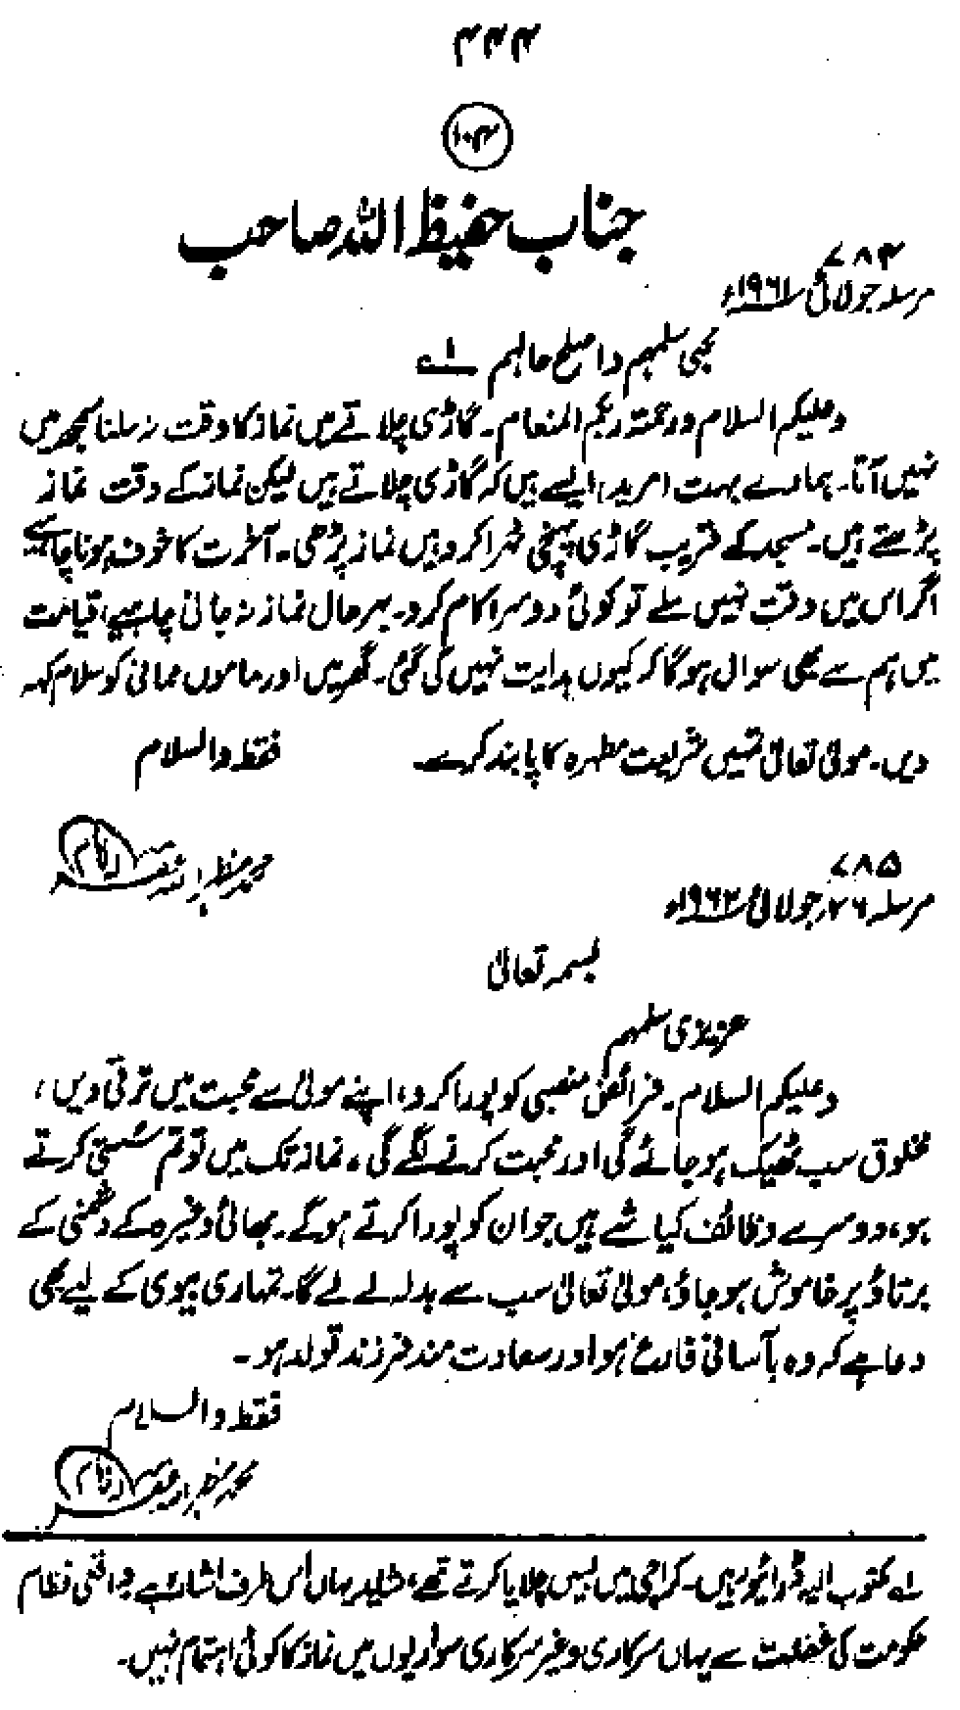 ۴۴۴
۱۰۴
جناب حفیظ اللہ صاحب
۷۸۴
مرسلہ جولائی ۱۹۶۱ء
محبی سلمہم واصلح حالہم ؎۱
وعلیکم السلام ورحمۃ ربکم المنعام۔ گاڑی چلاتے میں نماز کا وقت نہ ملنا سمجھ میں
نہیں آتا۔ ہمارے بہت (مرید) ایسے ہیں کہ گاڑی چلاتے ہیں لیکن نماز کے وقت نماز
پڑھتے ہیں۔ مسجد کے قریب گاڑی پہنچی ٹھہرا کر وہیں نماز پڑھی۔ آخرت کا خوف ہونا چاہئے
اگر اس میں وقت نہیں ملے تو کوئی دوسرا کام کرو۔ بہرحال نماز نہ جانی چاہیے، قیامت
میں ہم سے بھی سوال ہوگا کہ کیوں ہدایت نہیں کی گئی۔ گھر میں اور ماموں ممانی کو سلام کہہ
دیں۔ مولیٰ تعالیٰ تمہیں شریعت مطہرہ کا پابند کرے۔ فقط والسلام
محمد مظہر اللہ
۷۸۵
مرسلہ ۲۶؍جولائی ۱۹۶۲ء
بسمہ تعالیٰ
عزیزی سلمہم
وعلیکم السلام۔ فرائض منصبی کو پورا کرو، اپنے مولیٰ سے محبت میں ترقی دیں،
مخلوق سب ٹھیک ہو جائے گی اور محبت کرنے لگے گی، نماز تک میں تو تم سُستی کرتے
ہو، دوسرے وظائف کیا شے ہیں جو ان کو پورا کرتے ہوگے۔ بھائی وغیرہ کے دشمنی کے
برتاؤ پر خاموش ہو جاؤ، مولیٰ تعالیٰ سب سے بدلہ لے لے گا۔ تمہاری بیوی کے لیے بھی
دعا ہے کہ وہ بآسانی فارغ ہو اور سعادت مند فرزند تولد ہو۔
فقط والسلام
محمد مظہر اللہ
؎۱ مکتوب الیہ ڈرائیور ہیں۔ کراچی میں بسیں چلایا کرتے تھے، شاید یہاں اس طرف اشارہ ہے، واقعی نظام
حکومت کی غفلت سے یہاں سرکاری وغیر سرکاری سواریوں میں نماز کا کوئی اہتمام نہیں۔